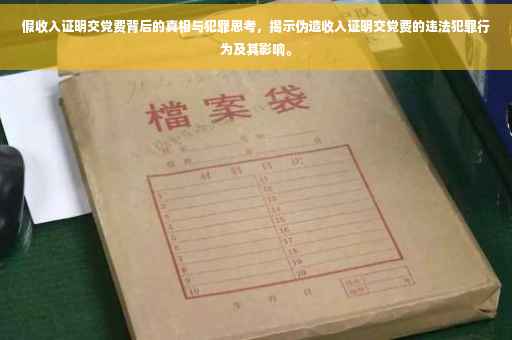 假收入证明交党费背后的真相与犯罪思考，揭示伪造收入证明交党费的违法犯罪行
为及其影响。
檔案袋
材料目次
1 11
2 12
3 13
4 14
5 15
6 16
7 17
8 18
9 19
10 20
年 月 日